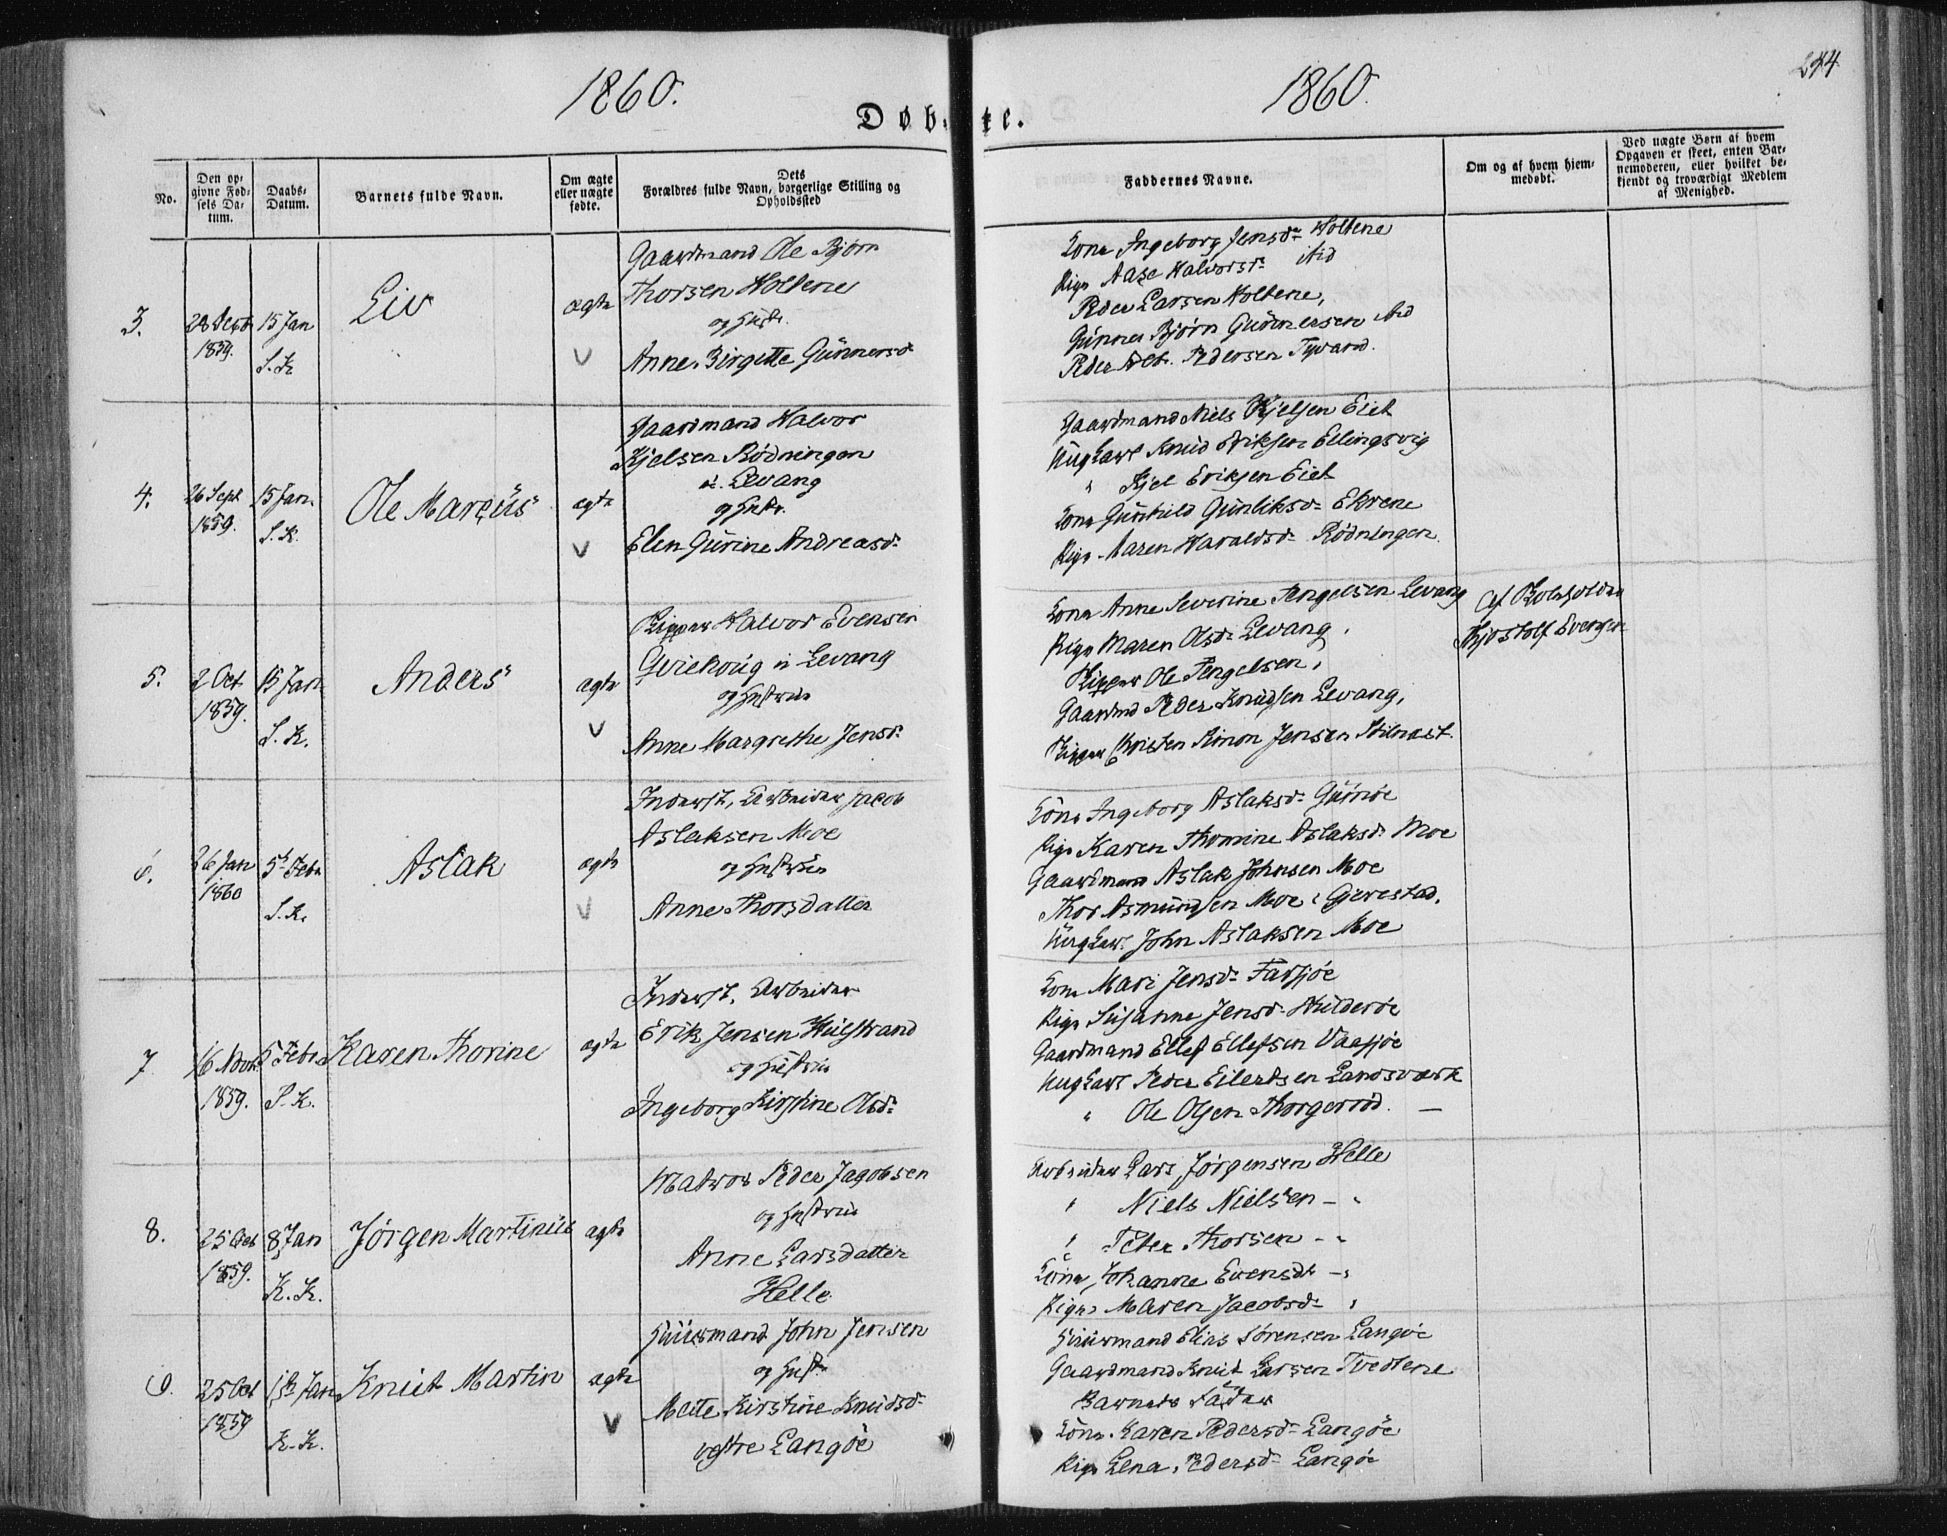 1860.
1860.
244
Døbte.
No.
Den op-
givne Fød-
sels Da-
tum.
Daabs-
Datum.
Barnets fulde Navn.
Om ægte
eller uægte
fødte.
Dets
Forældres fulde Navn, borgerlige Stilling og
Opholdssted
Faddernes Navne.
Om og af hvem hjem-
medøbt.
Ved uægte Børn af hvem
Opgaven er skeet, enten Bar-
nemoderen, eller hvilket be-
kjendt og troværdigt Medlem
af Menighed.
3.
28 Sept
1859.
15 Jan
S. K
Liv
ægte
Gaardmand Ole Bjørn
Thorsen Holtene
og Hustr.
Anne Birgitte Gunnersd
Kone Ingeborg Jensdr Holtene
Pige Aase Halvorsdr ibid
Peder Larsen Holtene,
Gunner Bjørn Gunnersen ibid
Peder Pedersen Tyvand.
4.
26 Sept
1859.
15 Jan.
S. K.
Ole Marcus
ægte
Gaardmand Halvor
Kjelsen Rødningen
i Levang
og Hustr.
Elen Gurine Andreasdr
Gaardmand Niels Kjelsen Eiet
Ungkarl Knud Eriksen Ellingsvig
" Kjel Eriksen Eiet
Kone Gunhild Gunliksdr Ekrene
Pige Maren Haraldsdr Rødningen.
5.
2 Oct
1859.
15 Jan
S. K.
Anders
ægte
Skipper Halvor Evensen
i Levang
og Hustrue
Anne Margrethe Jensdr
Kone Anne Severine Tengelsen Levang
Pige Maren Olsdr Levang,
Skipper Ole Tengelsen,
Gaardmd Peder Knudsen Levang,
Skipper Christen Simon Jensen Stilnæst.
Af
Kjøstolf Evensen
6.
26 Jan
1860
5t Febr
S. K.
Aslak
ægte
Inderst, Arbeider Jacob
Aslaksen Moe
og Hustrue
Anne Thorsdatter
Kone Ingeborg Aslaksdr Gumøe
Pige Karen Thomine Aslaksdr Moe
Gaardmand Aslak Johnsen Moe
Thor Asmundsen Moe i Gjerestad.
Ungkarl John Aslaksen Moe
7
16 Novbr
1859.
5 Febr
S. K.
Karen Thorine
ægte
Inderst, Arbeider
Erik Jensen Hulstrand
og Hustrue
Ingeborg Kirstine Olsdr
Kone Mari Jensdr Farsjøe
Pige Susanne Jensdr Skilderøe
Gaardmand Ellef Ellefsen Vaasjøe
Ungkarl Peder Eilertsen Landsværk
" Ole Olsen Thorgersrød. —
8.
25 Oct
1859.
8 Jan
K. K.
Jørgen Martinius
ægte
Matros Peder Jagobsen
og Hustrue
Anne Larsdatter
Helle
Arbeider Lars Jørgensen Helle
" Niels Nielsen - "
" Peter Thorsen - "
Kone Johanne Evensdr - "
Pige Maren Jacobsdr "
9.
25 Oct
1859
15 Jan
K. K.
Knut Martin
ægte
Huusmand John Jensen
og Hust.
Mette Kirstine Knudsdr
vestre Langøe
Huusmand Elias Sørensen Langøe
Gaardmand Knut Larsen Tvedtene
Barnets Fader
Kone Karen Pedersdr Langøe
Pige Lena Pedersdr Langøe